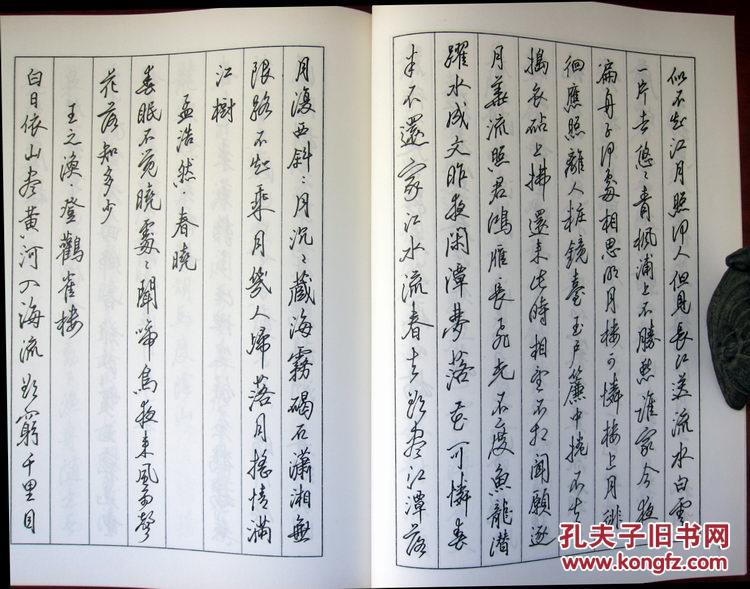 似不知江月照何人但見長江送流水白雲
一片去悠〻青楓浦上不勝愁誰家今夜
扁舟子何處相思明月樓可憐樓上月徘
徊應照離人粧鏡臺玉戶簾中捲不去
搗衣砧上拂還来此時相望不相聞願逐
月華流照君鴻雁長飛光不度魚龍潜
躍水成文昨夜閑潭夢落花可憐春
半不還家江水流春去欲盡江潭落
月復西斜〻月沉〻藏海霧碣石瀟湘無
限路不知乘月幾人歸落月搖情滿
江樹
孟浩然·春曉
春眠不覺曉處〻聞啼鳥夜来風雨聲
花落知多少
王之渙·登鸛雀樓
白日依山盡黄河入海流欲窮千里目
孔夫子旧书网
www.kongfz.com